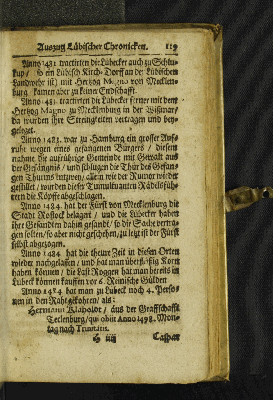 Auszug Lübischer Chronicken. 119
Anno 1481. tractirten die Lübecker auch zu Schlu-
kup / so ein Lübisch Kirch-Dorff an der Lübischen
Landwehr ist) mit Hertzog Magno von Mecklen-
burg / kamen aber zu keiner Endschafft.
Anno 1481. tractirten die Lübecker ferner mit dem
Hertzog Magno zu Mecklenburg in der Wißmar /
da wurden ihre Streitigkeiten vertragen und bey-
geleget.
Anno 1483. war zu Hamburg ein grosser Auff-
ruhr wegen eines gefangenen Bürgers / diesen
nahme die auffrührige Gemeinde mit Gewalt aus
der Gefängniß / und schlugen die Thür des Gefäng-
gen Thurms entzwey / allein wie der Rumor wieder
gestillet / wurden dieser Tumultuanten Rädelsfüh-
rern die Köpffe abgeschlagen.
Anno 1484. hat der Fürst von Mecklenburg die
Stadt Rostock belagert / und die Lübecker haben
ihre Gesandten dahin gesandt / so die Sache vertra-
gen solten / so aber nicht geschehen / zuletzt ist der Fürst
selbst abgezogen.
Anno 1484. hat die theure Zeit in diesen Orten
wieder nachgelassen / und hat man überflüßig Korn
haben können / die Last Roggen hat man bereits in
Lübeck können kauffen vor 6. Reinische Gülden
Anno 1484. hat man zu Lübeck noch 4. Perso-
nen in den Raht gekohren / als:
Hermann Klaholdt / aus der Graffschafft
Teclenburg / qui obiit Anno 1498. Mon-
tag nach Trinitatis.
H iiij Casper